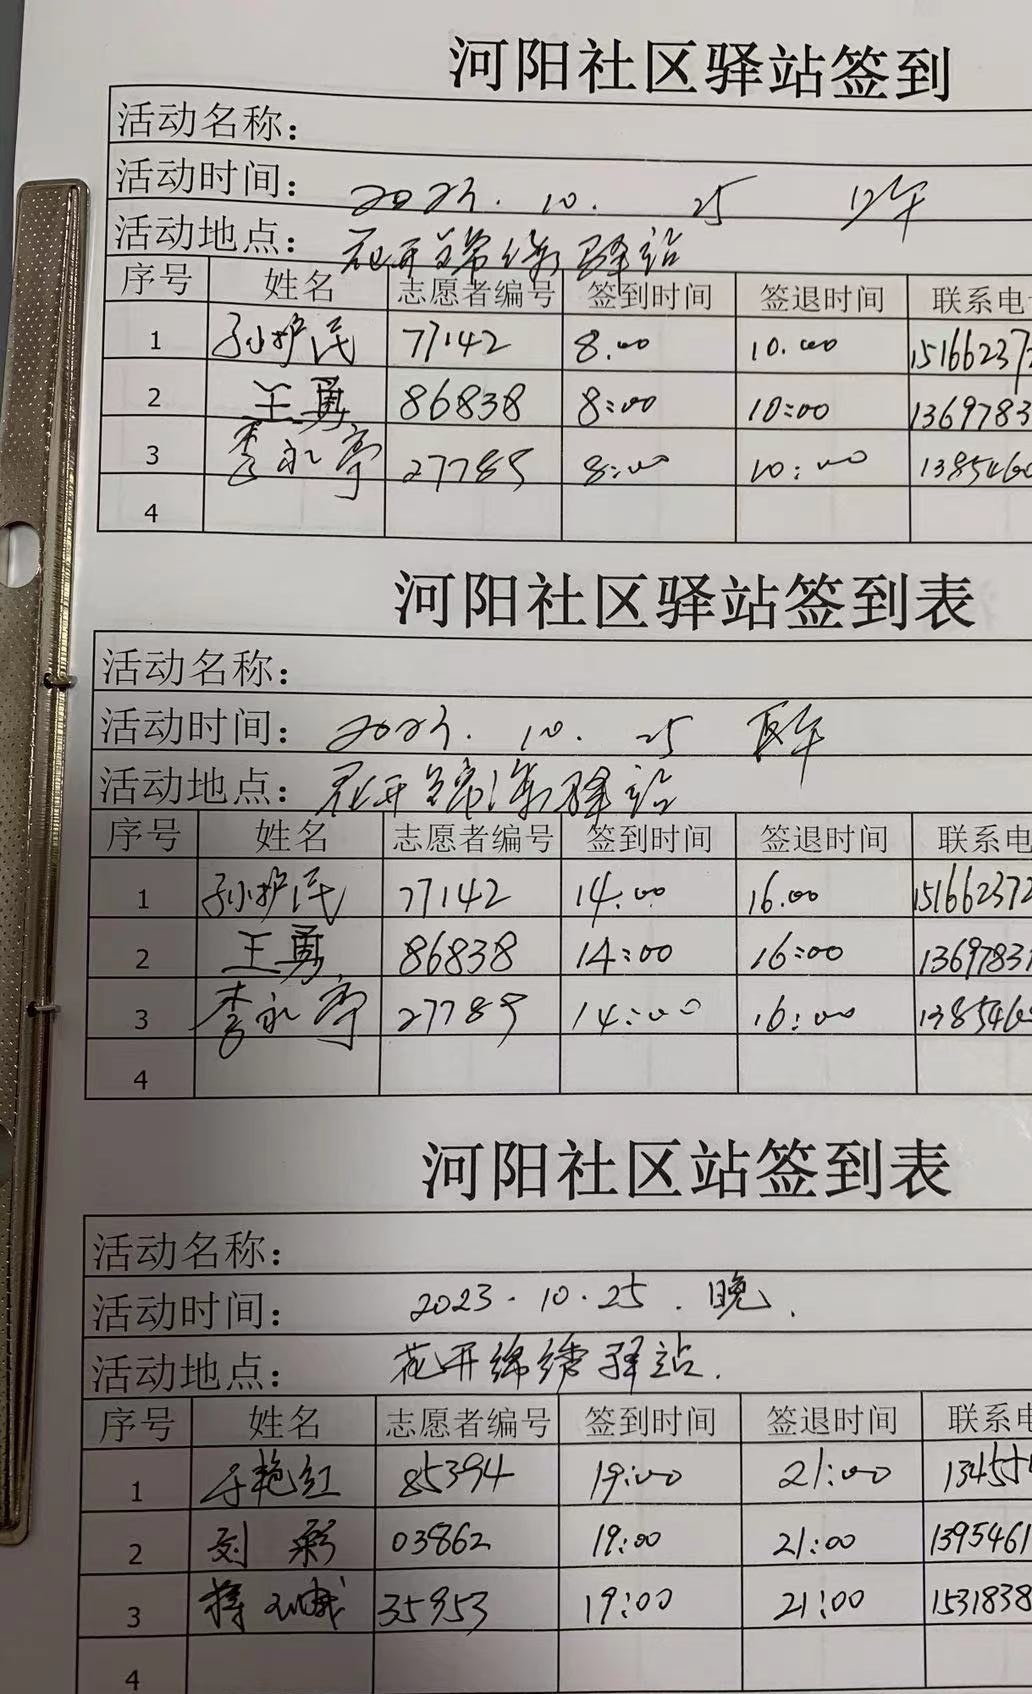 河阳社区驿站签到
活动名称：
活动时间： 2023. 10. 25 上午
活动地点： 花开锦绣驿站
序号 姓名 志愿者编号 签到时间 签退时间 联系电
1 孙护民 77142 8.00 10.00 15166237
2 王勇 86838 8:00 10:00 1369783
3 李永亭 27785 8:00 10:00 1385460
4
河阳社区驿站签到表
活动名称：
活动时间： 2023. 10. 25 下午
活动地点： 花开锦绣驿站
序号 姓名 志愿者编号 签到时间 签退时间 联系电
1 孙护民 77142 14.00 16.00 151662372
2 王勇 86838 14:00 16:00 1369783
3 李永亭 27785 14:00 16:00 1385460
4
河阳社区站签到表
活动名称：
活动时间： 2023.10.25.晚.
活动地点： 花开绵绣驿站.
序号 姓名 志愿者编号 签到时间 签退时间 联系电
1 于艳红 85394 19:00 21:00 13455
2 刘彩 03862 19:00 21:00 1395461
3 35953 19:00 21:00 1531838
4